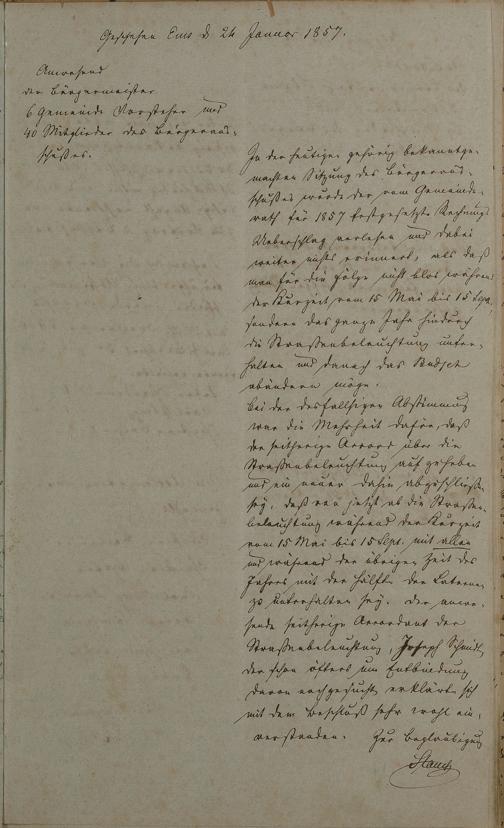 Geschehen Ems d. 24 Januar 1857.
Anwesend
der Bürgermeister
6 Gemeinde Vorsteher und
40 Mitglieder des Bürgeraus-
schußes.
In der heutigen gehörig bekanntge-
machten Sitzung des Bürgeraus-
schußes wurde der vom Gemeinde-
rath für 1857 festgesetzte Rechnungs
Ueberschlag verlesen und dabei
weiter nichts erinnert, als daß
man für die Folge nicht blos während
der Kurzeit vom 15 Mai bis 15 Sept.
sondern das ganze Jahr hindurch
die Straßenbeleuchtung unter-
halten und danach das Budjet
abändern möge.
Bei der desfallsigen Abstimmung
war die Mehrheit dafür, daß
der seitherige Accord über die
Straßenbeleuchtung aufgehoben
und ein neuer dahin abgeschlossen
sey, daß von jetzt ab die Straßen-
beleuchtung während der Kurzeit
vom 15 Mai bis 15 Sept. mit allen
und während der übrigen Zeit des
Jahres mit der Hälfte der Laternen
zu unterhalten sey. Der anwe-
sende seitherige Accordant der
Straßenbeleuchtung, Joseph Schmidt,
der schon öfters um Entbindung
davon nachgesucht, erklärt sich
mit dem Beschluß sehr wohl ein-
verstanden. Zur Beglaubigung